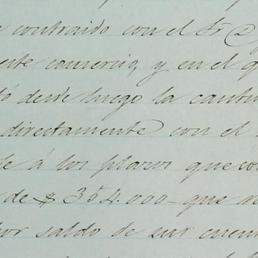 contraido con el Sr
ente comercio, y en el q
tó desde luego la cantid
directamente con el
e á los plazos que co
de $ 3 ó 4.000 — que r
or saldo de sus cuen